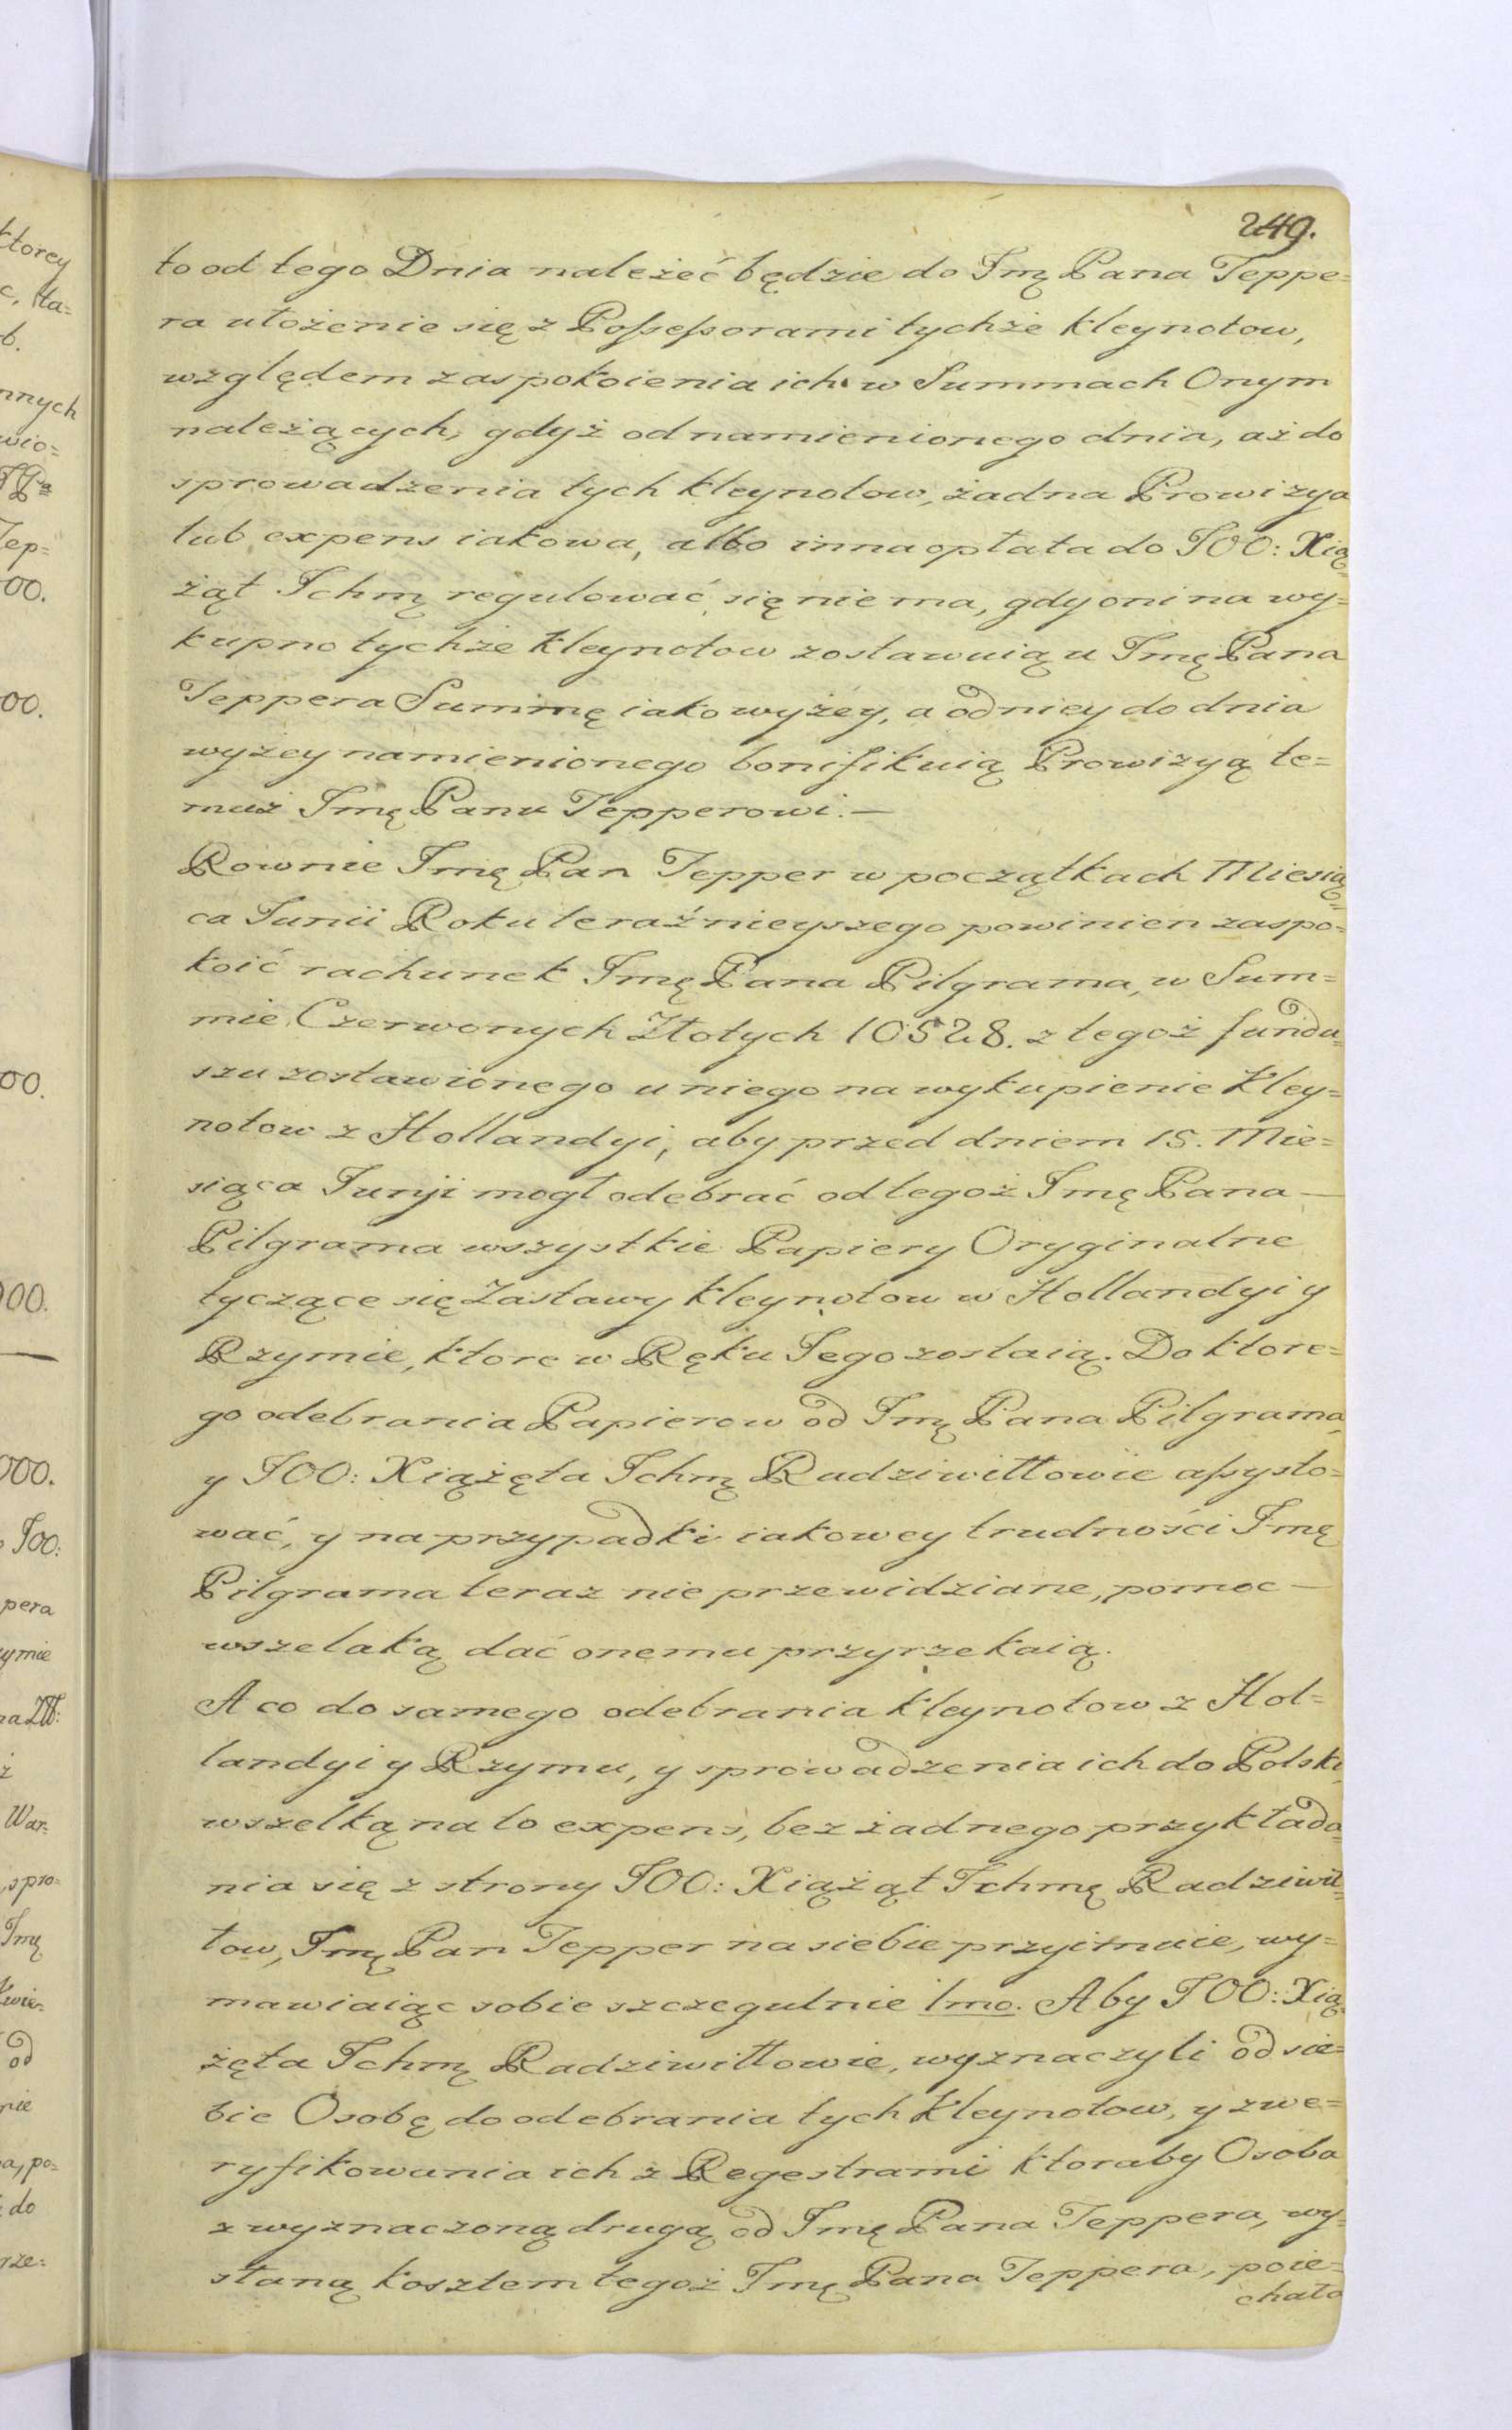 249.
to od tego Dnia należeć będzie do Jmę Pana Teppe=
ra ułożenie się z Possessorami tychże kleynotow,
względem zaspokoienia ich w Summach Onym
należących, gdyż od namienionego dnia, aż do
sprowadzenia tych kleynotow, żadna Prowizya
lub expens iakowa, albo inna opłata do JOO: Xią=
żąt Jchmę regulować się nie ma, gdy oni na wy=
kupno tychże kleynotow zostawuią u Jmę Pana
Teppera Summę iako wyżey, a od niey do dnia
wyżey namienionego bonifikuią Prowizyą te=
muż Jmę Panu Tepperowi.—
Rownie Jmę Pan Tepper w początkach Miesią=
ca Junii Roku teraźnieyszego powinien zaspo=
koić rachunek Jmę Pana Pilgrama, w Sum=
mie Czerwonych Złotych 10528. z tegoż fundu=
szu zostawionego u niego na wykupienie Kley=
notow z Hollandyi, aby przed dniem 15. Mie=
siąca Junji mogł odebrać od tegoż Jmę Pana —
Pilgrama wszystkie Papiery Oryginalne
tyczące się Zastawy kleynotow w Hollandyi y
Rzymie, ktore w Ręku Jego zostaią. Do ktore=
go odebrania Papierow od Jmę Pana Pilgrama,
y JOO: Xiążęta Jchmę Radziwiłłowie assysto=
wać, y na przypadki iakowey trudności Jmę
Pilgrama teraz nie przewidziane, pomoc —
wszelaką dać onemu przyrzekaią.
A co do samego odebrania kleynotow z Hol=
landyi y Rzymu, y sprowadzenia ich do Polski,
wszelką na to expens, bez żadnego przykłada=
nia się z strony JOO: Xiążąt Jchmę Radziwił=
łow, Jmę Pan Tepper na siebie przyimuie, wy=
mawiaiąc sobie szczegulnie 1mo. Aby JOO: Xią=
żęta Jchmę Radziwiłłowie, wyznaczyli od sie=
bie Osobę do odebrania tych Kleynotow, y zwe=
ryfikowania ich z Regestrami ktoraby Osoba
z wyznaczoną drugą od Jmę Pana Teppera, wy=
słaną kosztem tegoż Jmę Pana Teppera, poie=
chała
ktorey
nnych
wio=
Tep=
00.
00.
00.
000.
000.
JOO:
pera
ymie
War=
spro=
Jmę
Kwie=
od
nie
po=
do
rze: